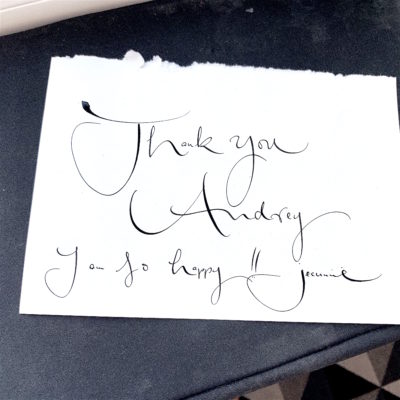 Thank you
Andrey
I am so happy !! jeannie